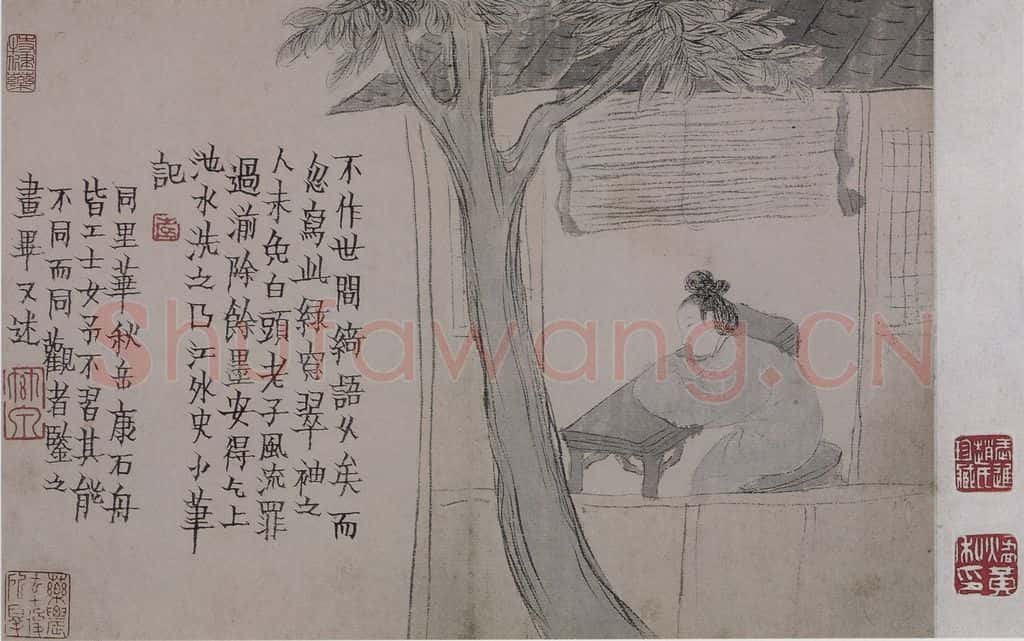 不作世間綺語久矣而
忽寫此綠窗翠袖之
人未免白頭老子風流罪
過湔除餘墨安得乞上
池水洗之曲江外史小筆
記
同里華秋岳康石舟
皆工士女予不習其能
不同而同觀者鑒之
畫畢又述
武進趙氏珍藏
Shufawang.CN